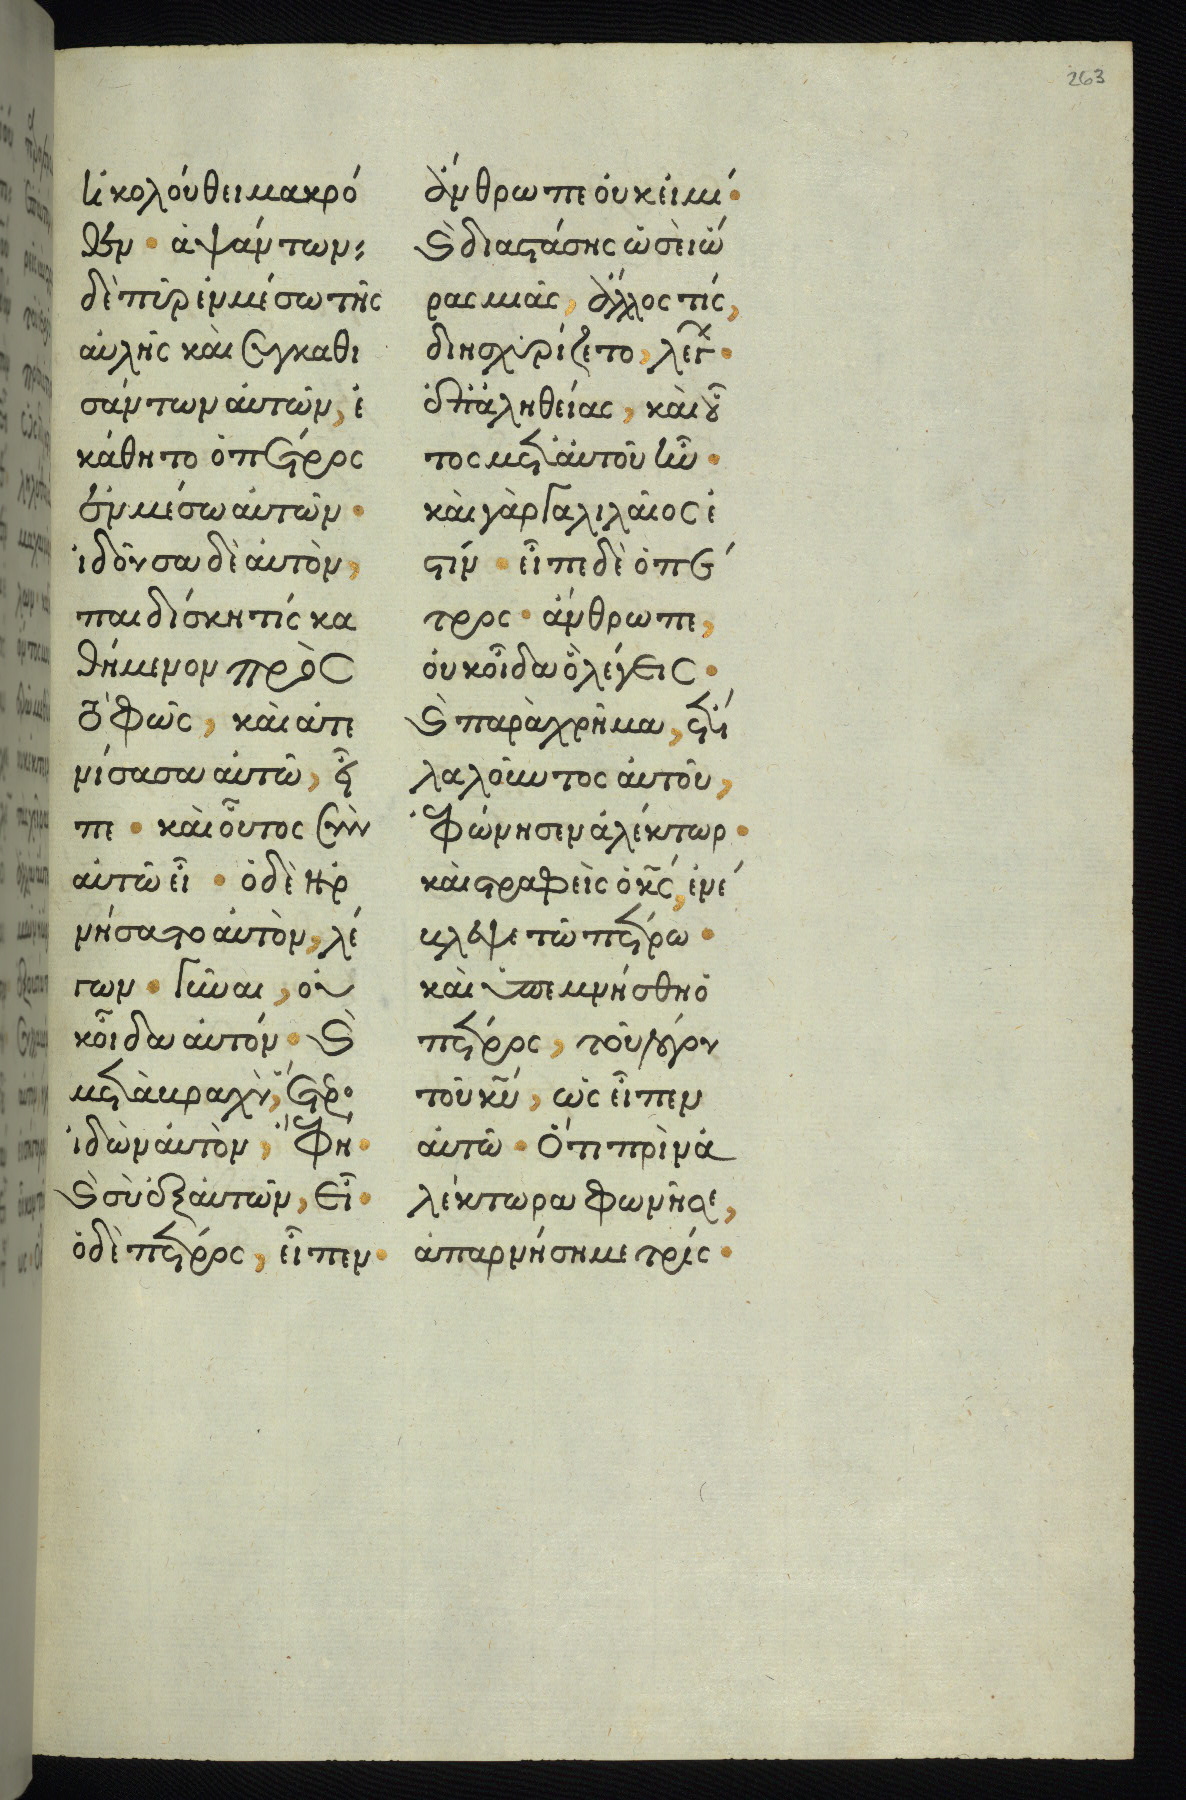 263
ἠκολούθει μακρό
θεν · ἁψάντων
δὲ πῦρ ἐν μέσω τῆς
αὐλῆς καὶ συγκαθι
σάντων αὐτῶν, ἐ
κάθητο ὁ πέτρος
ἐν μέσω αὐτῶν ·
ἰδοῦσα δὲ αὐτὸν,
παιδίσκη τίς κα
θήμενον πρὸς
τὸ φῶς, καὶ ἀτε
νίσασα αὐτῶ, εἶ
πε · καὶ οὗτος σὺν
αὐτῶ εἶ · ὁ δὲ ἠρ
νήσατο αὐτὸν, λέ
γων · Γύναι, οὐ
κ οἶδα αὐτόν · καὶ
μετὰ βραχὺ, ἕτερο
ἰδὼν αὐτὸν, ἔφη ·
καὶ σὺ ἐξ αὐτῶν, εἶ ·
ὁ δὲ πέτρος, εἶπεν ·
ἄνθρωπε οὐκ εἰμί ·
καὶ διαστάσης ὡσεὶ ὥ
ρας μιᾶς, ἄλλος τίς,
διησχυρίζετο, λέγ ·
ἐπ' ἀληθείας, καὶ οὗ
τος μετ' αὐτοῦ ἦν ·
καὶ γὰρ Γαλιλαῖος ἐ
στίν · εἶπε δὲ ὁ πέ
τρος · ἄνθρωπε,
οὐκ οἶδα ὃ λέγεις ·
καὶ παραχρῆμα, ἔτι
λαλοῦντος αὐτοῦ,
ἐφώνησεν ἀλέκτωρ ·
καὶ στραφεὶς ὁ κς, ἐνέ
βλεψε τῶ πέτρω ·
καὶ ὑπεμνήσθη ὁ
πέτρος, τοῦ λόγου
τοῦ κυ, ὡς εἶπεν
αὐτῶ · Ὅτι πρὶν ἀ
λέκτορα φωνῆσαι,
ἀπαρνήση με τρίς ·